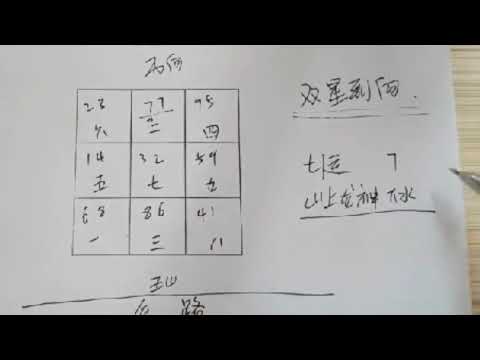 丙向
23 77 95
六 二 四
14 32 59
五 七 九
68 86 41
一 三 八
壬山
路
双星到向.
七运 7
山上龙神下水